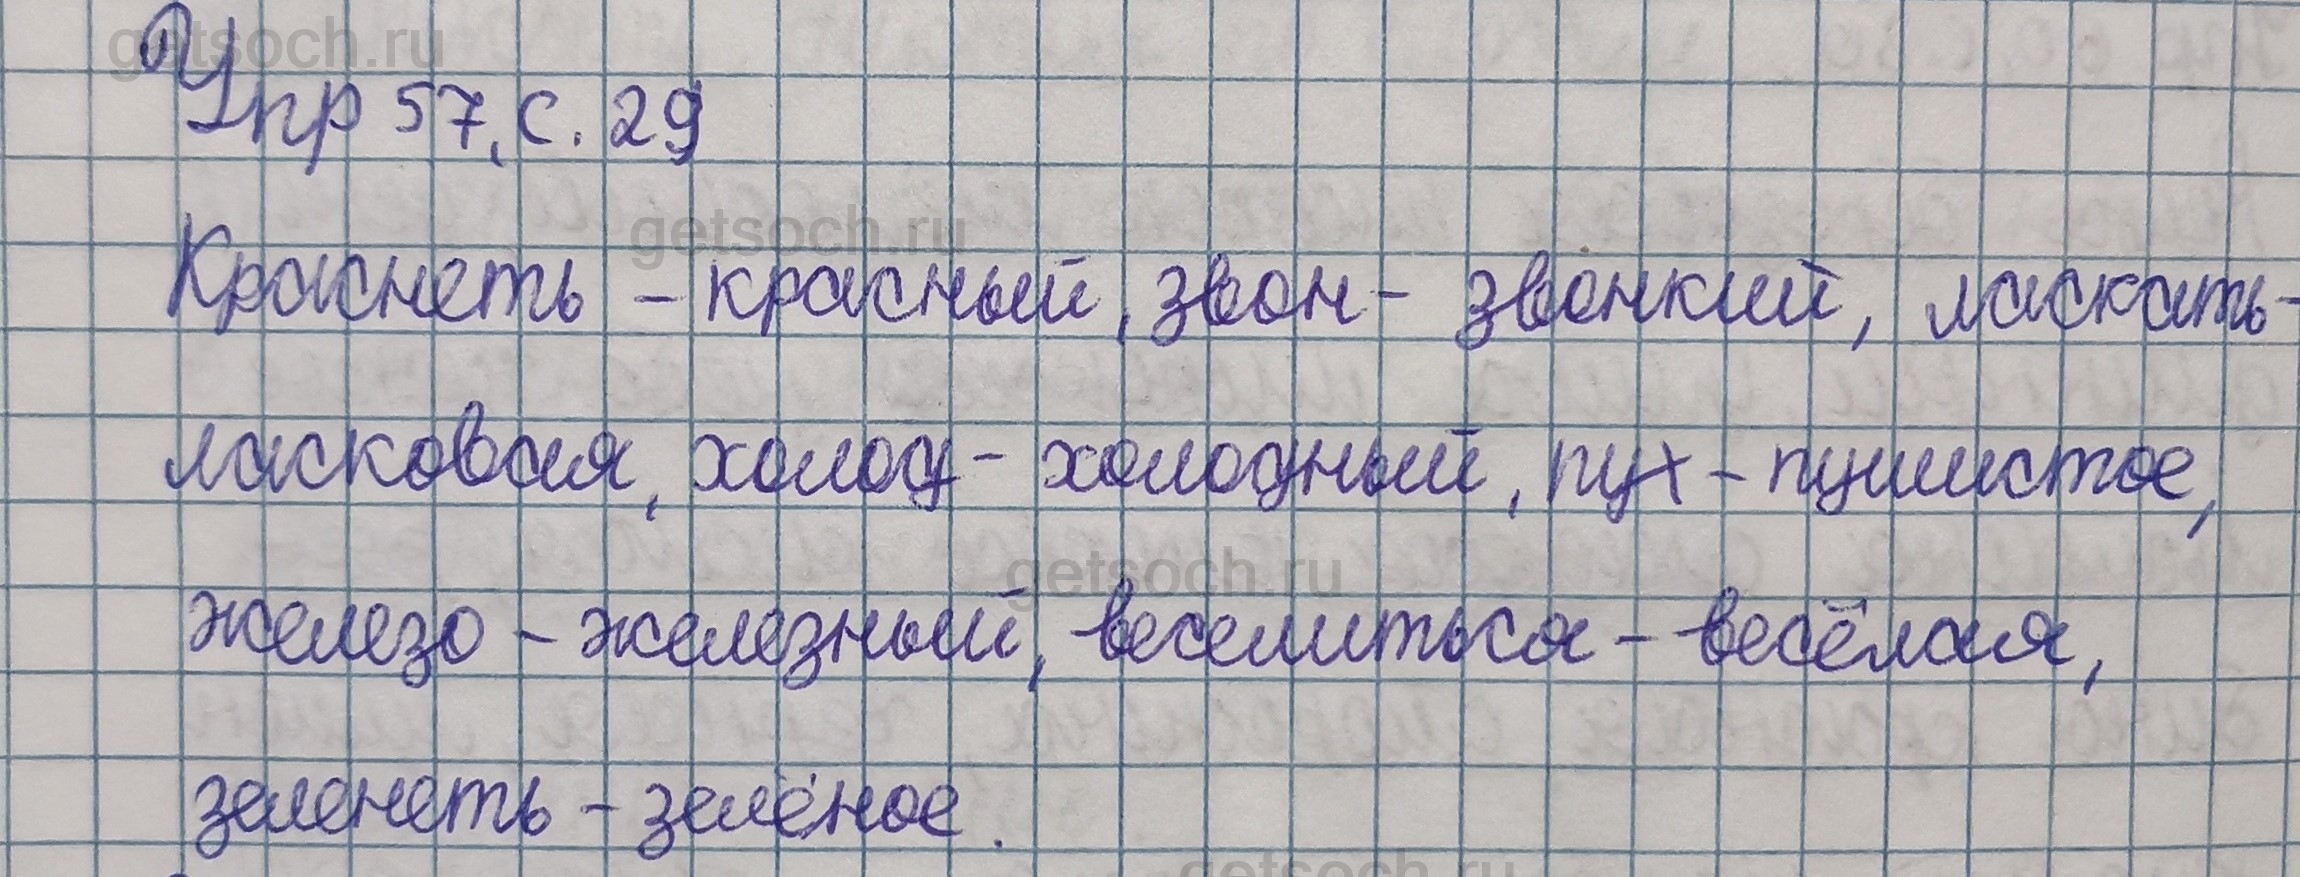 getsoch.ru
Упр 57, с. 29
getsoch.ru
Краснеть - красный, звон - звонкий, ласкать -
ласковая, холод - холодный, пух - пушистое,
getsoch.ru
железо - железный, веселиться - весёлая,
зеленеть - зелёное.
getsoch.ru